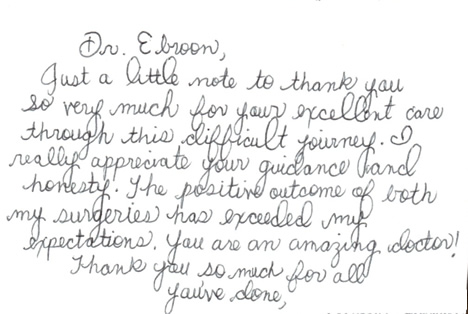 Dr. Ebroon,
Just a little note to thank you
so very much for your excellent care
through this difficult journey. I
really appreciate your guidance and
honesty. The positive outcome of both
my surgeries has exceeded my
expectations. You are an amazing doctor!
Thank you so much for all
you've done,